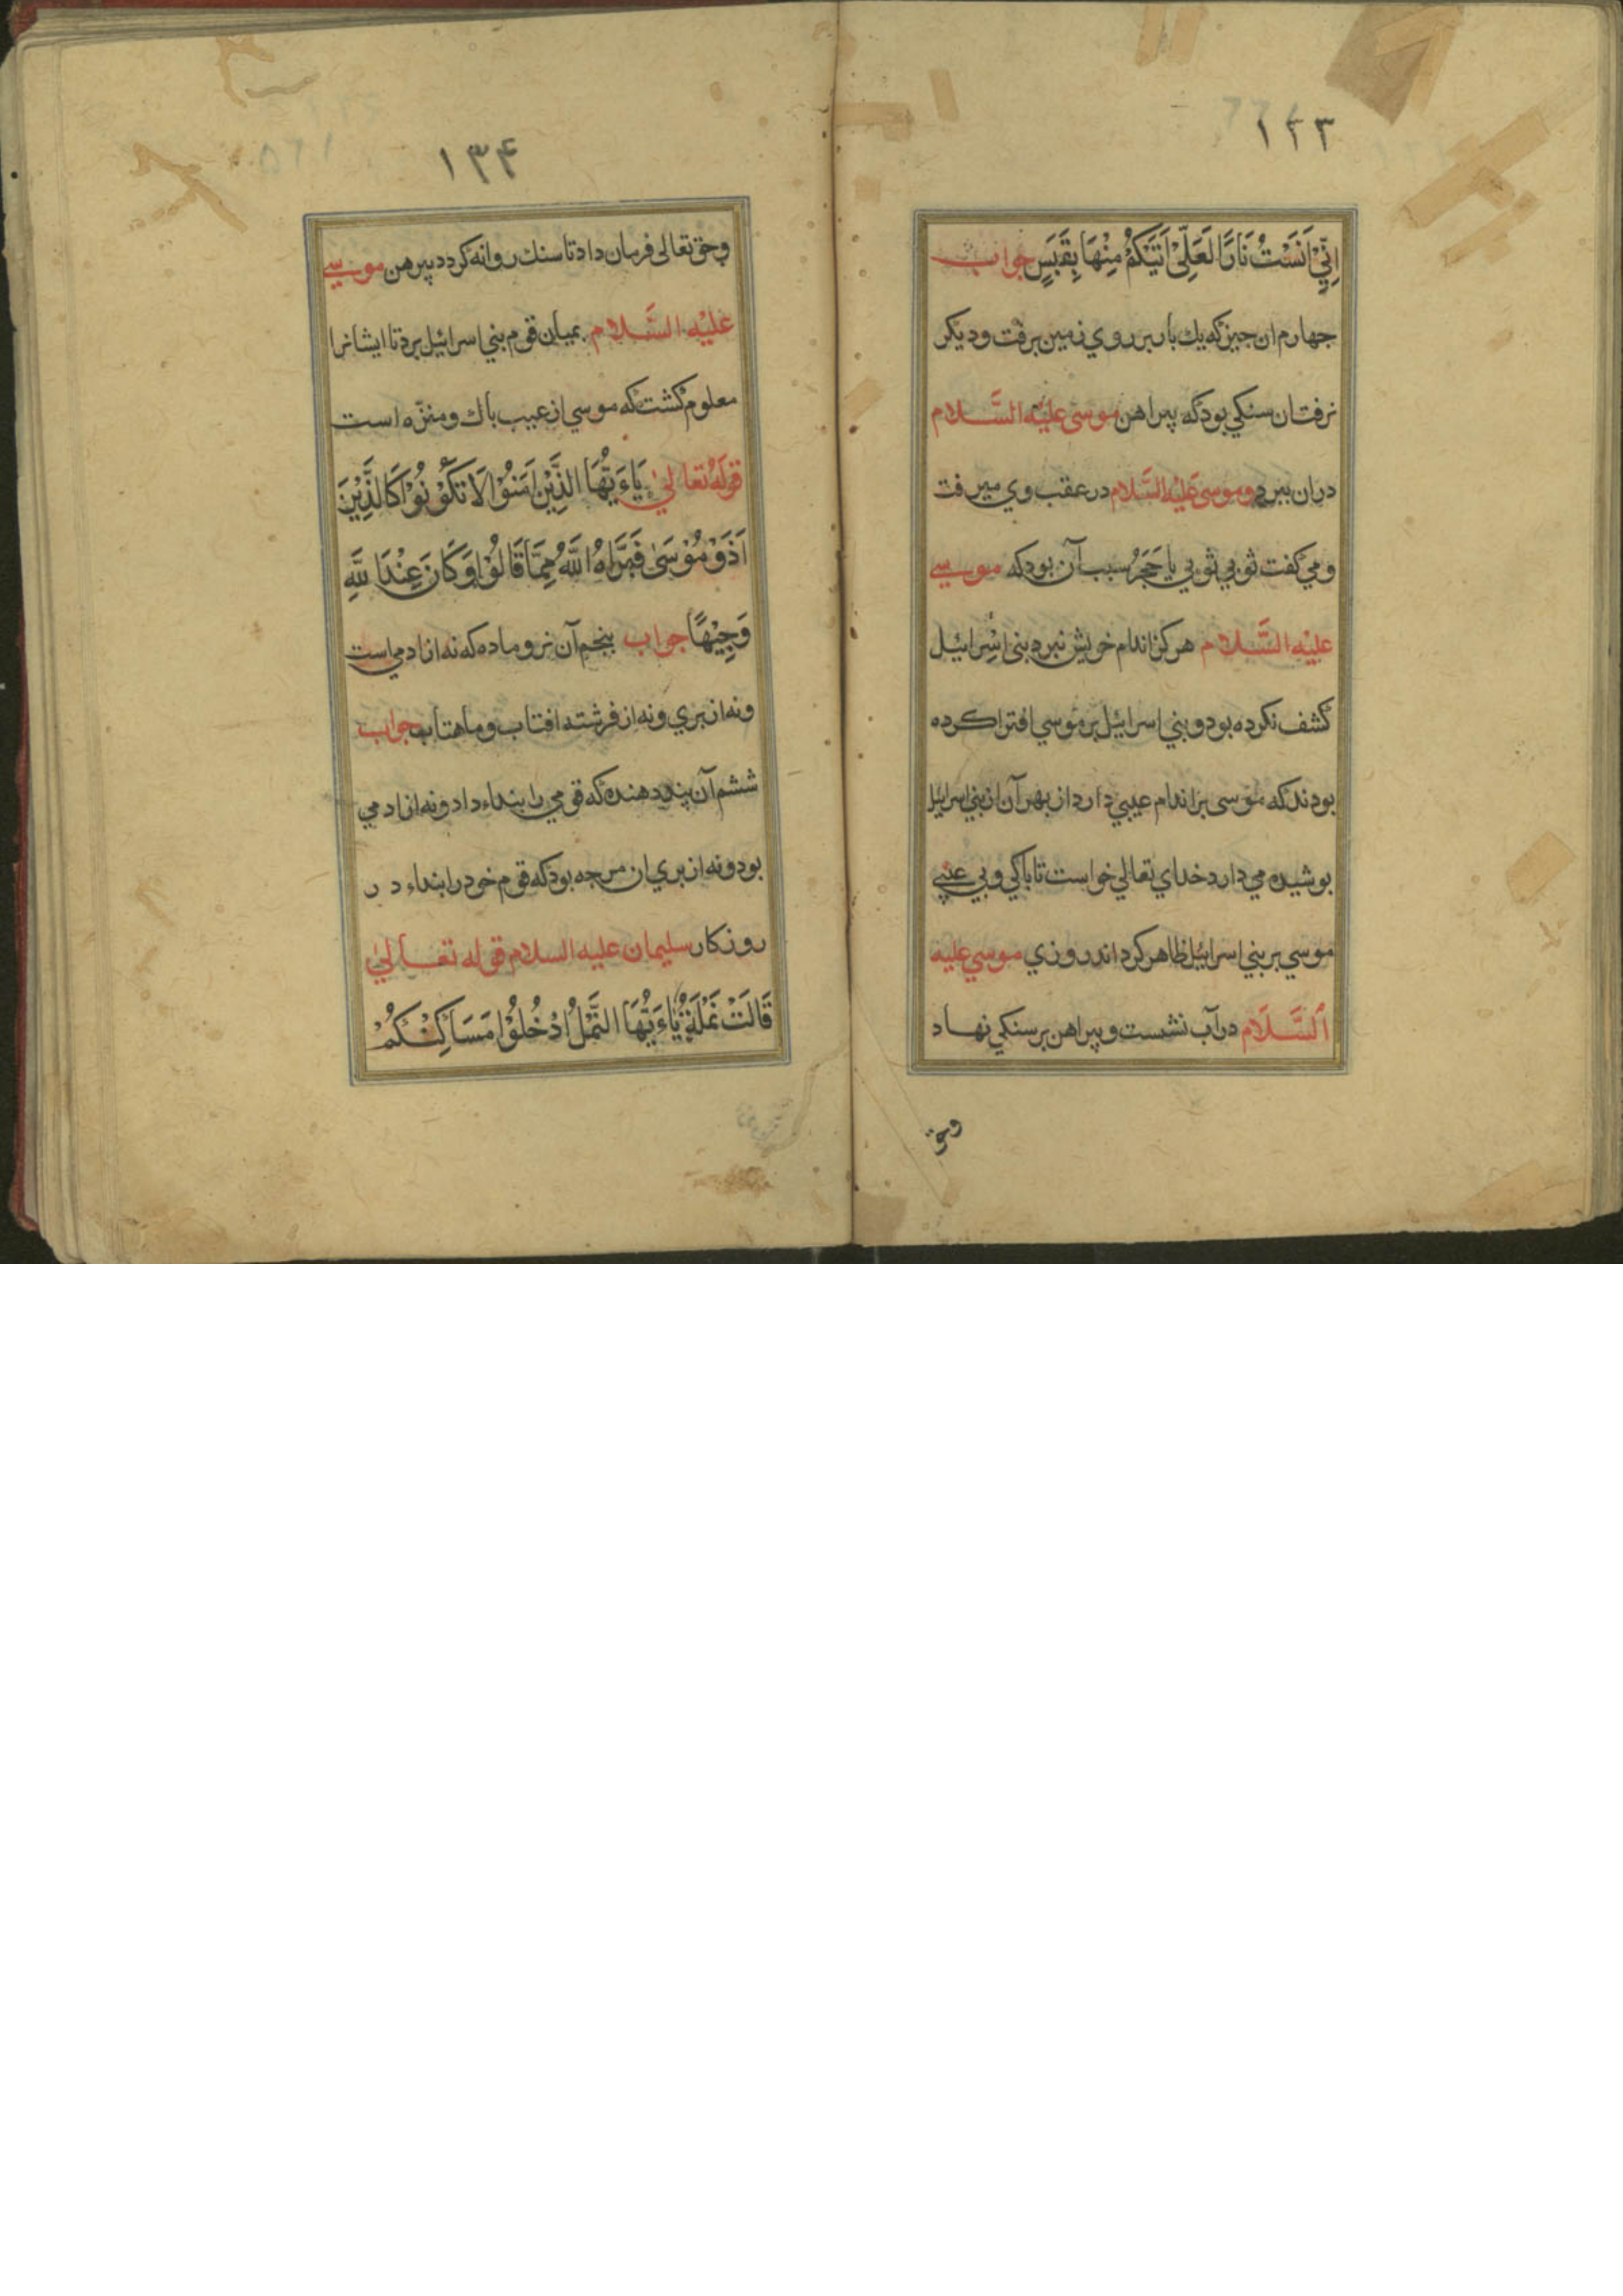 ۱۳۳
اِنّيْ اَنَسْتُ نَارًا لَعَلِّيْ اَتَيْكُمْ مِنْهَا بِقَبَسٍ جواب
جهارم ان جيز كه يك بار بر روي زمين برفت و ديكر
نرفت ان سنكي بود كه پيراهن موسى عليه السَّلام
دران ببرد و موسى عَليه السَّلام در عقب وي ميرفت
و مي كفت ثوبي ثوبي يا حَجَرُ سبب آن بود كه موسي
عليْه السَّلام هركز اندام خويش نبرد بنى اسْرائيل
كشف نكرده بود و بني اسرائيل بر موسي افترا كرده
بودند كه موسى بر اندام عيبي دارد از بهر آن از بني اسرائيل
بوشيده مي دارد خداي تعالي خواست تا باكي و بي عيبي
موسي بر بني اسرائيل ظاهر كرداند روزي موسي عليه
السَّلَام در آب نشست و پيراهن بر سنكي نهاد
وحق
۱۳۴
وحق تعالى فرمان داد تا سنك روانه كردد پيرهن موسي
عليْه السَّلام بميان قوم بني اسرائيل برد تا ايشانرا
معلوم كشت كه موسي از عيب باك و منزّه است
قولَهُ تعالىٰ يَاءَيُّهَا الَّذِيْنَ اٰمَنُوْا لَا تَكُوْنُوْا كَالَّذِيْنَ
اَذَوْ مُوْسَىٰ فَبَرَّاهُ اللَّهُ مِمَّا قَالُوْا وَكَانَ عِنْدَ اللَّهِ
وَجِيْهًا جواب بنجم آن نر و ماده كه نه از ادمي است
و نه از بري و نه از فرشته افتاب و ماهتاب جواب
ششم آن پند دهنده كه قومي را بنداء داد و نه از ادمي
بود و نه از بري ان مرجه بود كه قوم خود را بنداء در
روزكار سليمان عليه السلام قوله تعالىٰ
قَالَتْ نَمْلَةٌ يَاءَيُّهَا النَّمْلُ ادْخُلُوْا مَسَاكِنَكُمْ